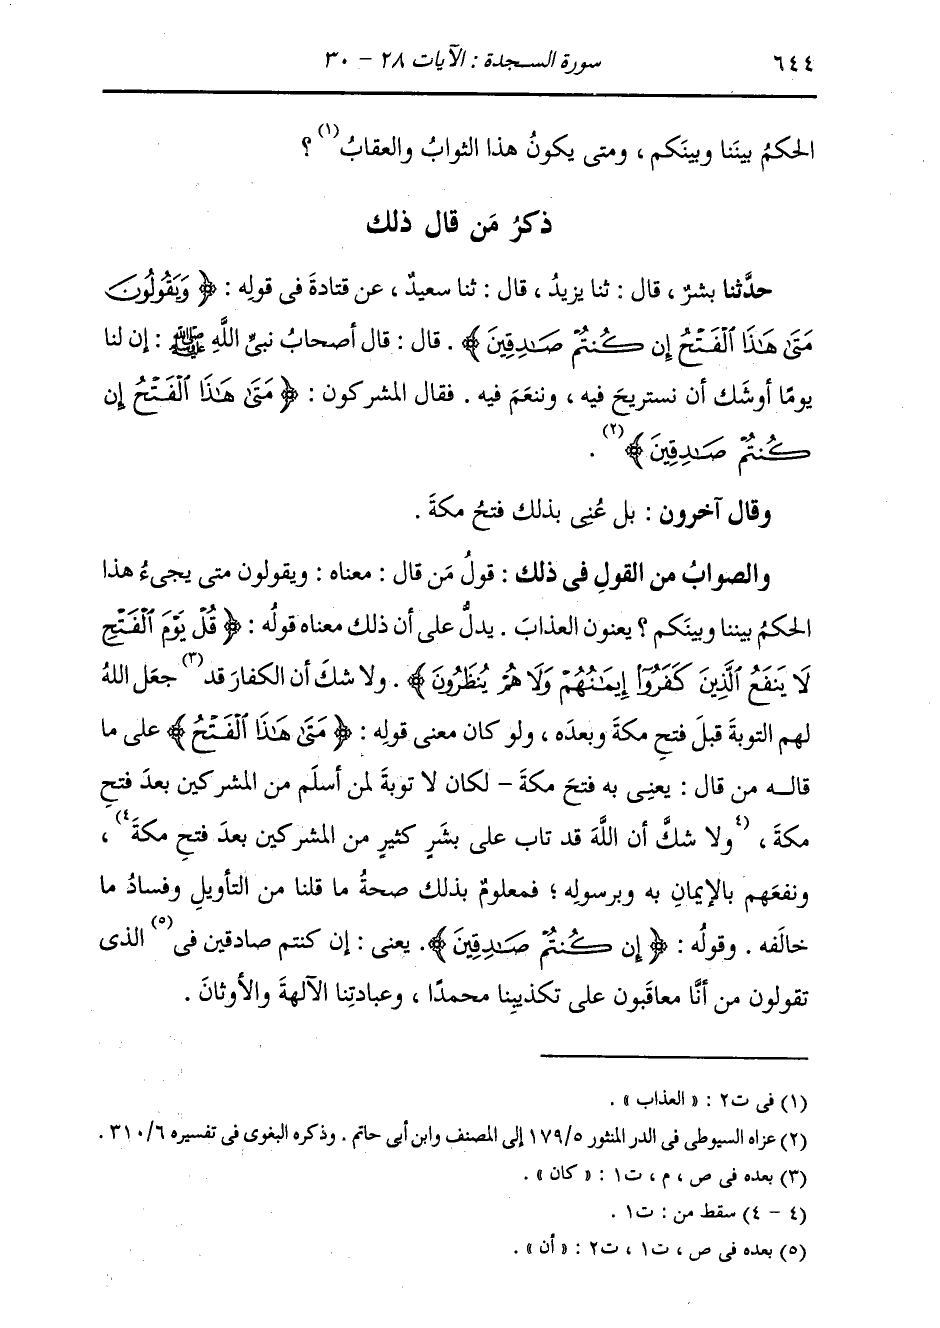 ٦٤٤ سورة السجدة : الآيات ٢٨ - ٣٠
الحكمُ بينَنا وبينَكم ، ومتى يكونُ هذا الثوابُ والعقابُ(١) ؟
ذكرُ مَن قال ذلك
حدَّثنا بشرٌ ، قال : ثنا يزيدُ ، قال : ثنا سعيدٌ ، عن قتادةَ فى قولِه : ﴿ وَيَقُولُونَ
مَتَىٰ هَٰذَا ٱلْفَتْحُ إِن كُنتُمْ صَٰدِقِينَ ﴾ . قال : قال أصحابُ نبىِّ اللَّهِ ﷺ : إن لنا
يومًا أوشَك أن نستريحَ فيه ، وننعَمَ فيه . فقال المشركون : ﴿ مَتَىٰ هَٰذَا ٱلْفَتْحُ إِن
كُنتُمْ صَٰدِقِينَ ﴾(٢) .
وقال آخرون : بل عُنِى بذلك فتحُ مكةَ .
والصوابُ من القولِ فى ذلك : قولُ مَن قال : معناه : ويقولون متى يجىءُ هذا
الحكمُ بيننا وبينَكم ؟ يعنون العذابَ . يدلُّ على أن ذلك معناه قولُه : ﴿ قُلْ يَوْمَ ٱلْفَتْحِ
لَا يَنفَعُ ٱلَّذِينَ كَفَرُوٓا۟ إِيمَٰنُهُمْ وَلَا هُمْ يُنظَرُونَ ﴾ . ولا شكَ أن الكفارَ قد(٣) جعَل اللهُ
لهم التوبةَ قبلَ فتحِ مكةَ وبعدَه ، ولو كان معنى قولِه : ﴿ مَتَىٰ هَٰذَا ٱلْفَتْحُ ﴾ على ما
قالـه من قال : يعنِى به فتحَ مكةَ - لكان لا توبةَ لمن أسلَم من المشركين بعدَ فتحِ
مكةَ ، (٤ولا شكَّ أن اللَّهَ قد تاب على بشَرٍ كثيرٍ من المشركين بعدَ فتحِ مكةَ٤) ،
ونفعَهم بالإيمانِ به وبرسولِه ؛ فمعلومٌ بذلك صحةُ ما قلنا من التأويلِ وفسادُ ما
خالَفه . وقولُه : ﴿ إِن كُنتُمْ صَٰدِقِينَ ﴾. يعنى : إن كنتم صادقين فى(٥) الذى
تقولون من أنَّا معاقَبون على تكذيبِنا محمدًا ، وعبادتِنا الآلهةَ والأوثانَ .
(١) فى ت٢ : « العذاب » .
(٢) عزاه السيوطى فى الدر المنثور ١٧٩/٥ إلى المصنف وابن أبى حاتم . وذكره البغوى فى تفسيره ٣١٠/٦ .
(٣) بعده فى ص ، م ، ت١ : « كان » .
(٤ - ٤) سقط من : ت١ .
(٥) بعده فى ص ، ت١ ، ت٢ : « أن » .